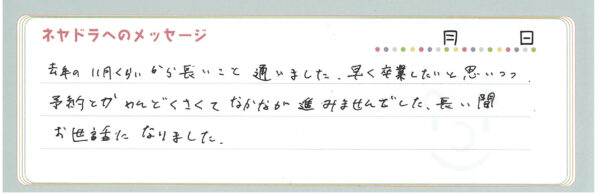 ネヤドラへのメッセージ
月 日
去年の11月くらいから長いこと通いました。早く卒業したいと思いつつ
予約とかめんどくさくてなかなか進みませんでした、長い間
お世話になりました。